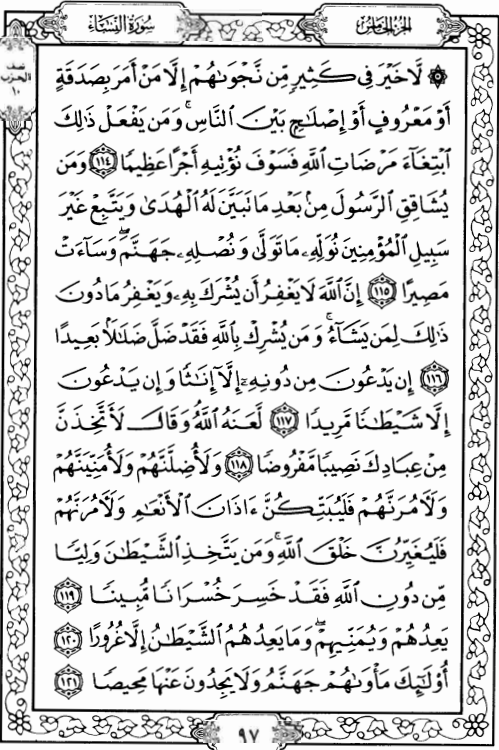 سُورَةُ النِّسَاءِ
الجُزْءُ الخَامِسُ
نصف
الحزب
١٠
۞ لَّا خَيْرَ فِى كَثِيرٍ مِّن نَّجْوَىٰهُمْ إِلَّا مَنْ أَمَرَ بِصَدَقَةٍ
أَوْ مَعْرُوفٍ أَوْ إِصْلَٰحٍۭ بَيْنَ ٱلنَّاسِ ۚ وَمَن يَفْعَلْ ذَٰلِكَ
ٱبْتِغَآءَ مَرْضَاتِ ٱللَّهِ فَسَوْفَ نُؤْتِيهِ أَجْرًا عَظِيمًا ۝١١٤ وَمَن
يُشَاقِقِ ٱلرَّسُولَ مِنۢ بَعْدِ مَا تَبَيَّنَ لَهُ ٱلْهُدَىٰ وَيَتَّبِعْ غَيْرَ
سَبِيلِ ٱلْمُؤْمِنِينَ نُوَلِّهِۦ مَا تَوَلَّىٰ وَنُصْلِهِۦ جَهَنَّمَ ۖ وَسَآءَتْ
مَصِيرًا ۝١١٥ إِنَّ ٱللَّهَ لَا يَغْفِرُ أَن يُشْرَكَ بِهِۦ وَيَغْفِرُ مَا دُونَ
ذَٰلِكَ لِمَن يَشَآءُ ۚ وَمَن يُشْرِكْ بِٱللَّهِ فَقَدْ ضَلَّ ضَلَٰلًۢا بَعِيدًا
۝١١٦ إِن يَدْعُونَ مِن دُونِهِۦٓ إِلَّآ إِنَٰثًا وَإِن يَدْعُونَ
إِلَّا شَيْطَٰنًا مَّرِيدًا ۝١١٧ لَّعَنَهُ ٱللَّهُ وَقَالَ لَأَتَّخِذَنَّ
مِنْ عِبَادِكَ نَصِيبًا مَّفْرُوضًا ۝١١٨ وَلَأُضِلَّنَّهُمْ وَلَأُمَنِّيَنَّهُمْ
وَلَءَامُرَنَّهُمْ فَلَيُبَتِّكُنَّ ءَاذَانَ ٱلْأَنْعَٰمِ وَلَءَامُرَنَّهُمْ
فَلَيُغَيِّرُنَّ خَلْقَ ٱللَّهِ ۚ وَمَن يَتَّخِذِ ٱلشَّيْطَٰنَ وَلِيًّا
مِّن دُونِ ٱللَّهِ فَقَدْ خَسِرَ خُسْرَانًا مُّبِينًا ۝١١٩
يَعِدُهُمْ وَيُمَنِّيهِمْ ۖ وَمَا يَعِدُهُمُ ٱلشَّيْطَٰنُ إِلَّا غُرُورًا ۝١٢٠
أُو۟لَٰٓئِكَ مَأْوَىٰهُمْ جَهَنَّمُ وَلَا يَجِدُونَ عَنْهَا مَحِيصًا ۝١٢١
٩٧